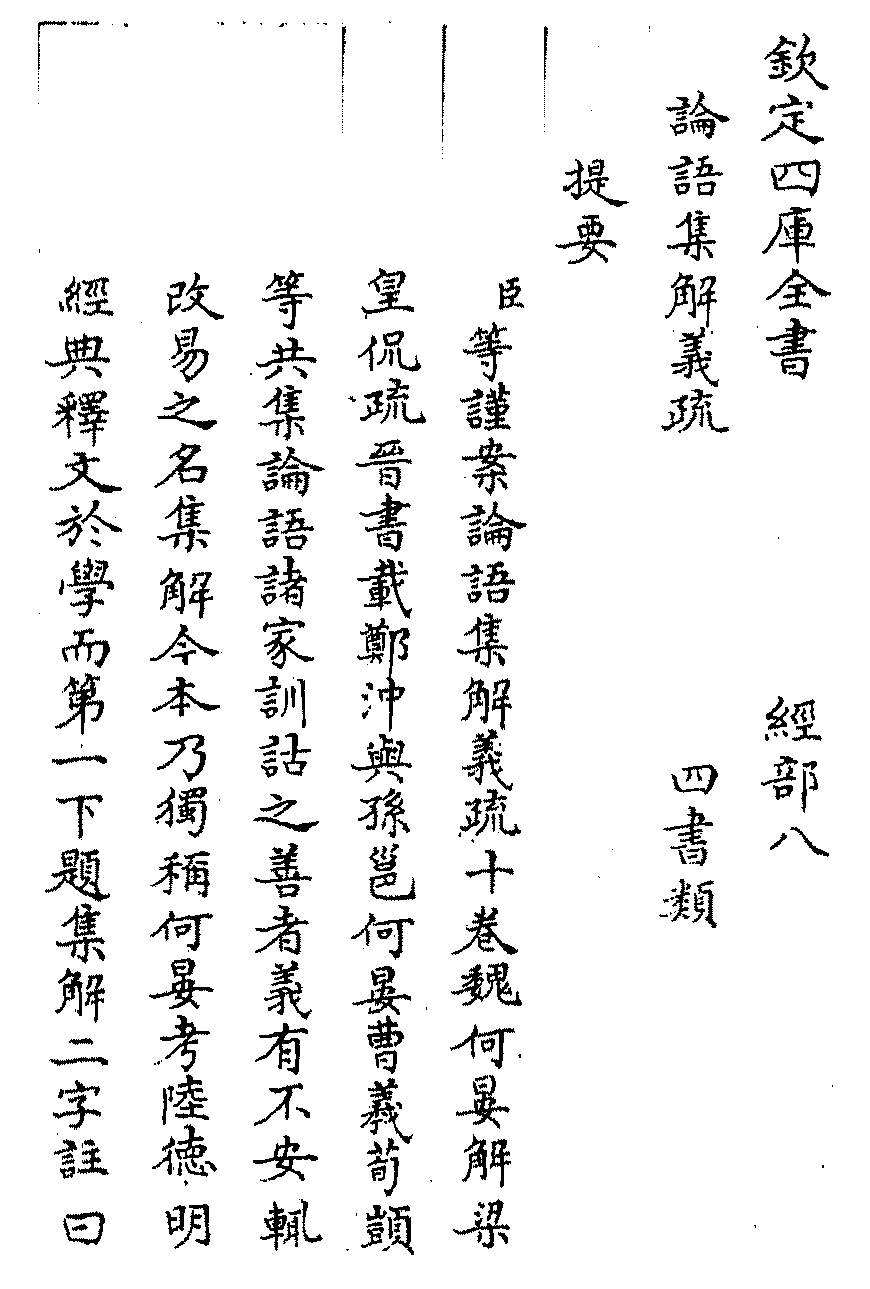 欽定四庫全書　經部八
論語集解義疏　四書類
提要
臣等謹案論語集解義疏十卷魏何晏解梁
皇侃疏晉書載鄭沖與孫邕何晏曹羲荀顗
等共集論語諸家訓詁之善者義有不安輒
改易之名集解今本乃獨稱何晏考陸德明
經典釋文於學而第一下題集解二字註曰